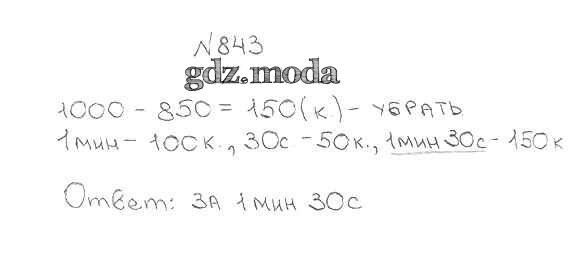 N843
gdz.moda
1000 - 850 = 150(к.) - УБРАТЬ
1 мин - 100к., 30с - 50к., 1мин 30с - 150к
Ответ: ЗА 1 мин 30с